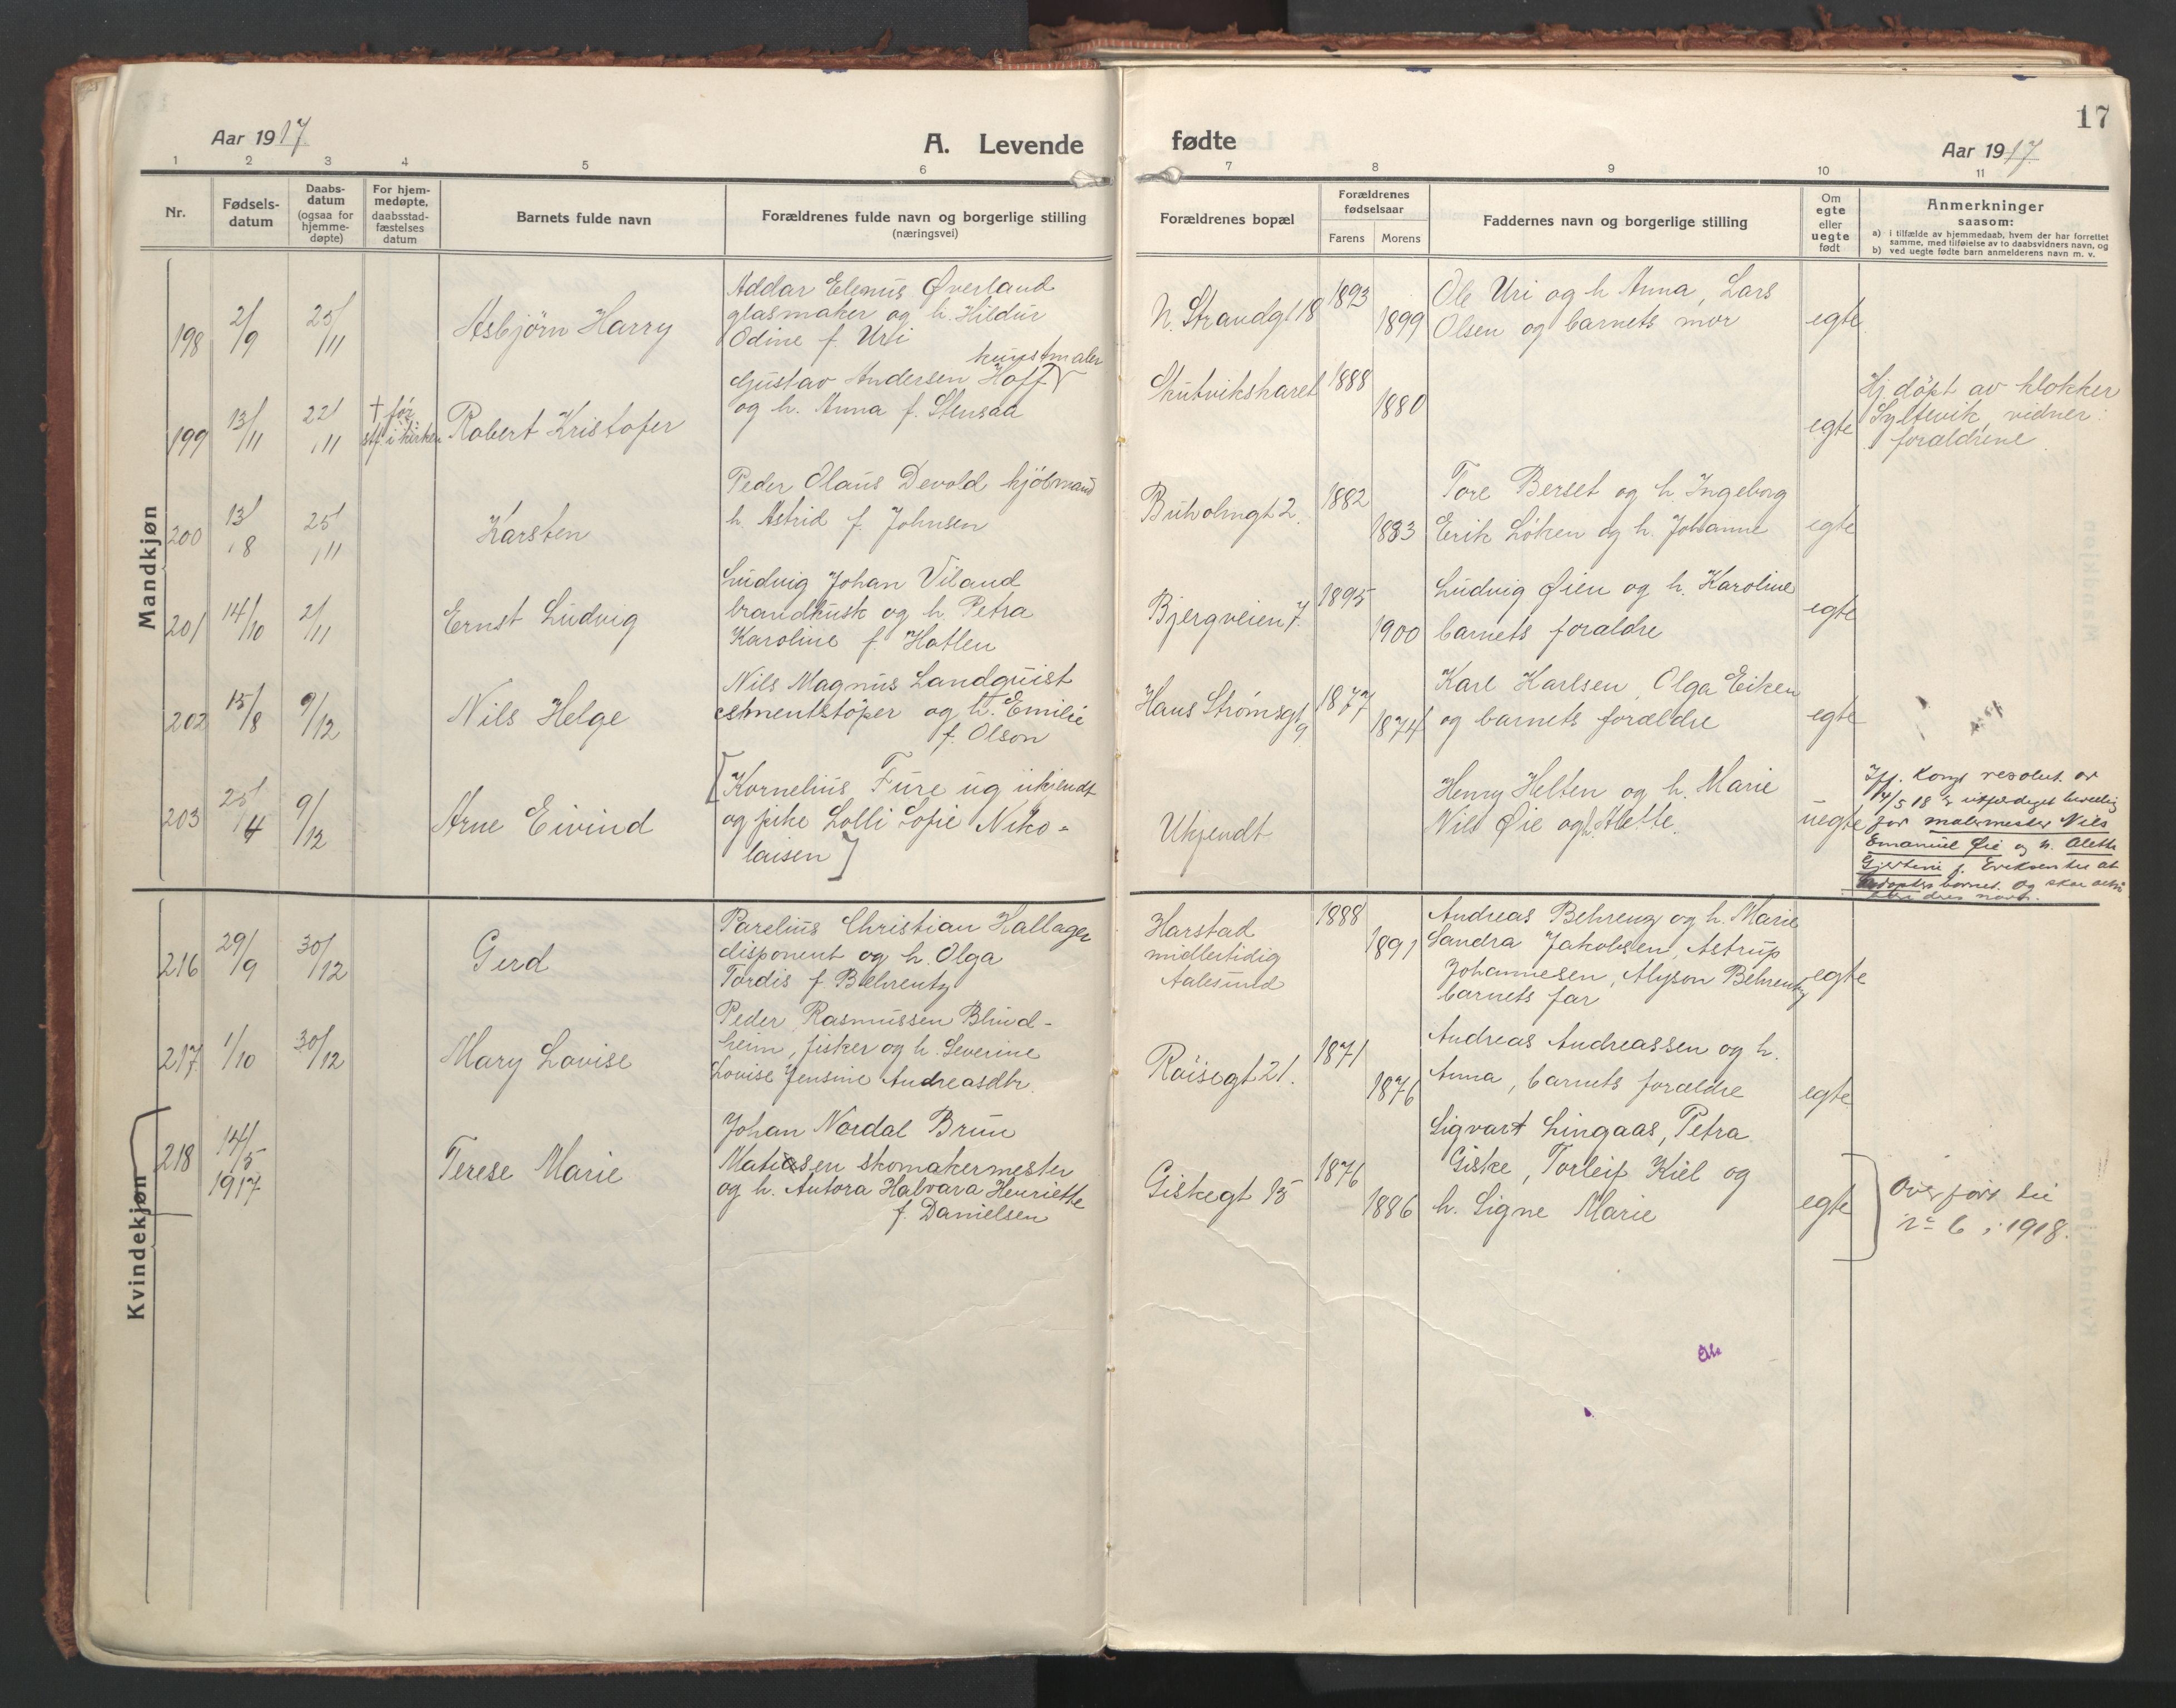 17
Aar 1917
A. Levende fødte
Aar 1917
1 2 3 4 5 6 7 8 9 10 11
Nr.
Fødsels-
datum
Daabs-
datum
(ogsaa for
hjemme-
døpte)
For hjem-
medøpte,
daabsstad-
fæstelses
datum
Barnets fulde navn
Forældrenes fulde navn og borgerlige stilling
(næringsvei)
Forældrenes bopæl
Forældrenes
fødselsaar
Farens Morens
Faddernes navn og borgerlige stilling
Om
egte
eller
uegte
født
Anmerkninger
saasom:
a) i tilfælde av hjemmedaab, hvem der har forrettet
samme, med tilføielse av to daabsvidners navn, og
b) ved uegte fødte barn anmelderens navn m. v.
Mandkjøn
198
2/9
25/11
Asbjörn Harry
Addar Elenius Øverland
glasmaker og h. Hildur
Odine f. Uri
N. Strandgt 18
1893
1899
Ole Uri og h Anna, Lars
Olsen og barnets mor
egte
199
13/11
22/11
† før
stf. i kirken
Robert Kristofer
kunstmaler
Gustav Andersen Hoff
og h. Anna f. Stensaa
Skutvikskaret
1888
1880
egte
Hj. döpt av klokker
Syltevik, vidner:
forældrene.
200
13/8
25/11
Karsten
Peder Olaus Devold kjöbmand
h. Astrid f. Johnsen
Buholmgt 2.
1882
1883
Tore Berset og h. Ingeborg
Erik Löken og h. Johanne
egte
201
14/10
2/11
Ernst Ludvig
Ludvig Johan Viland
brandkusk og h. Petra
Karoline f. Hatlen
Bjergveien 7.
1895
1900
Ludvig Øien og h. Karoline
barnets forældre
egte
202
15/8
9/12
Nils Helge
Nils Magnus Landquist
cementstöper og h. Emilie
f. Olson
Hans Strömsgt
9
1877
1874
Karl Karlsen, Olga Eiken
og barnets forældre
egte
203
25/4
9/12
Arne Eivind
[Kornelius Fure ug ukjendt
og pike Lolli Sofie Niko-
laisen]
Ukjendt
Henry Helten og h. Marie
Nils Øie og h. Alette.
uegte
Iff. Kongl resolut. av
14/5 18 er utfærdiget bevilling
for malermester Nils
Emanuel Øie og h. Alette
f. Eriksen til at
adoptere barnet. Og skal
navn.
Kvindekjøn
216
29/9
30/12
Gerd
Parelius Christian Hallager
disponent og h. Olga
Tordis f. Behrentz
Harstad
midlertidig
Aalesund
1888
1891
Andreas Behrenz og h. Marie
Sandra Jakobsen, Astrup
Johannesen, Alyson Behrentz
barnets far
egte
217
1/10
30/12
Mary Lovise
Peder Rasmussen Blind-
heim, fisker og h. Severine
Lovise Jensine Andreasdtr.
Röisegt 21.
1871
1876
Andreas Andreassen og h.
Anna, barnets forældre
egte
218
14/5
1917
Terese Marie
Johan Nordal Brun
Matiasen skomakermester
og h. Antora Halvara Henriette
f. Danielsen
Giskegt 15
1876
1886
Sigvart Lingaas, Petra
Giske, Torleif Kiel og
h. Signe Marie
egte
Overfört til
nr 6 i 1918.